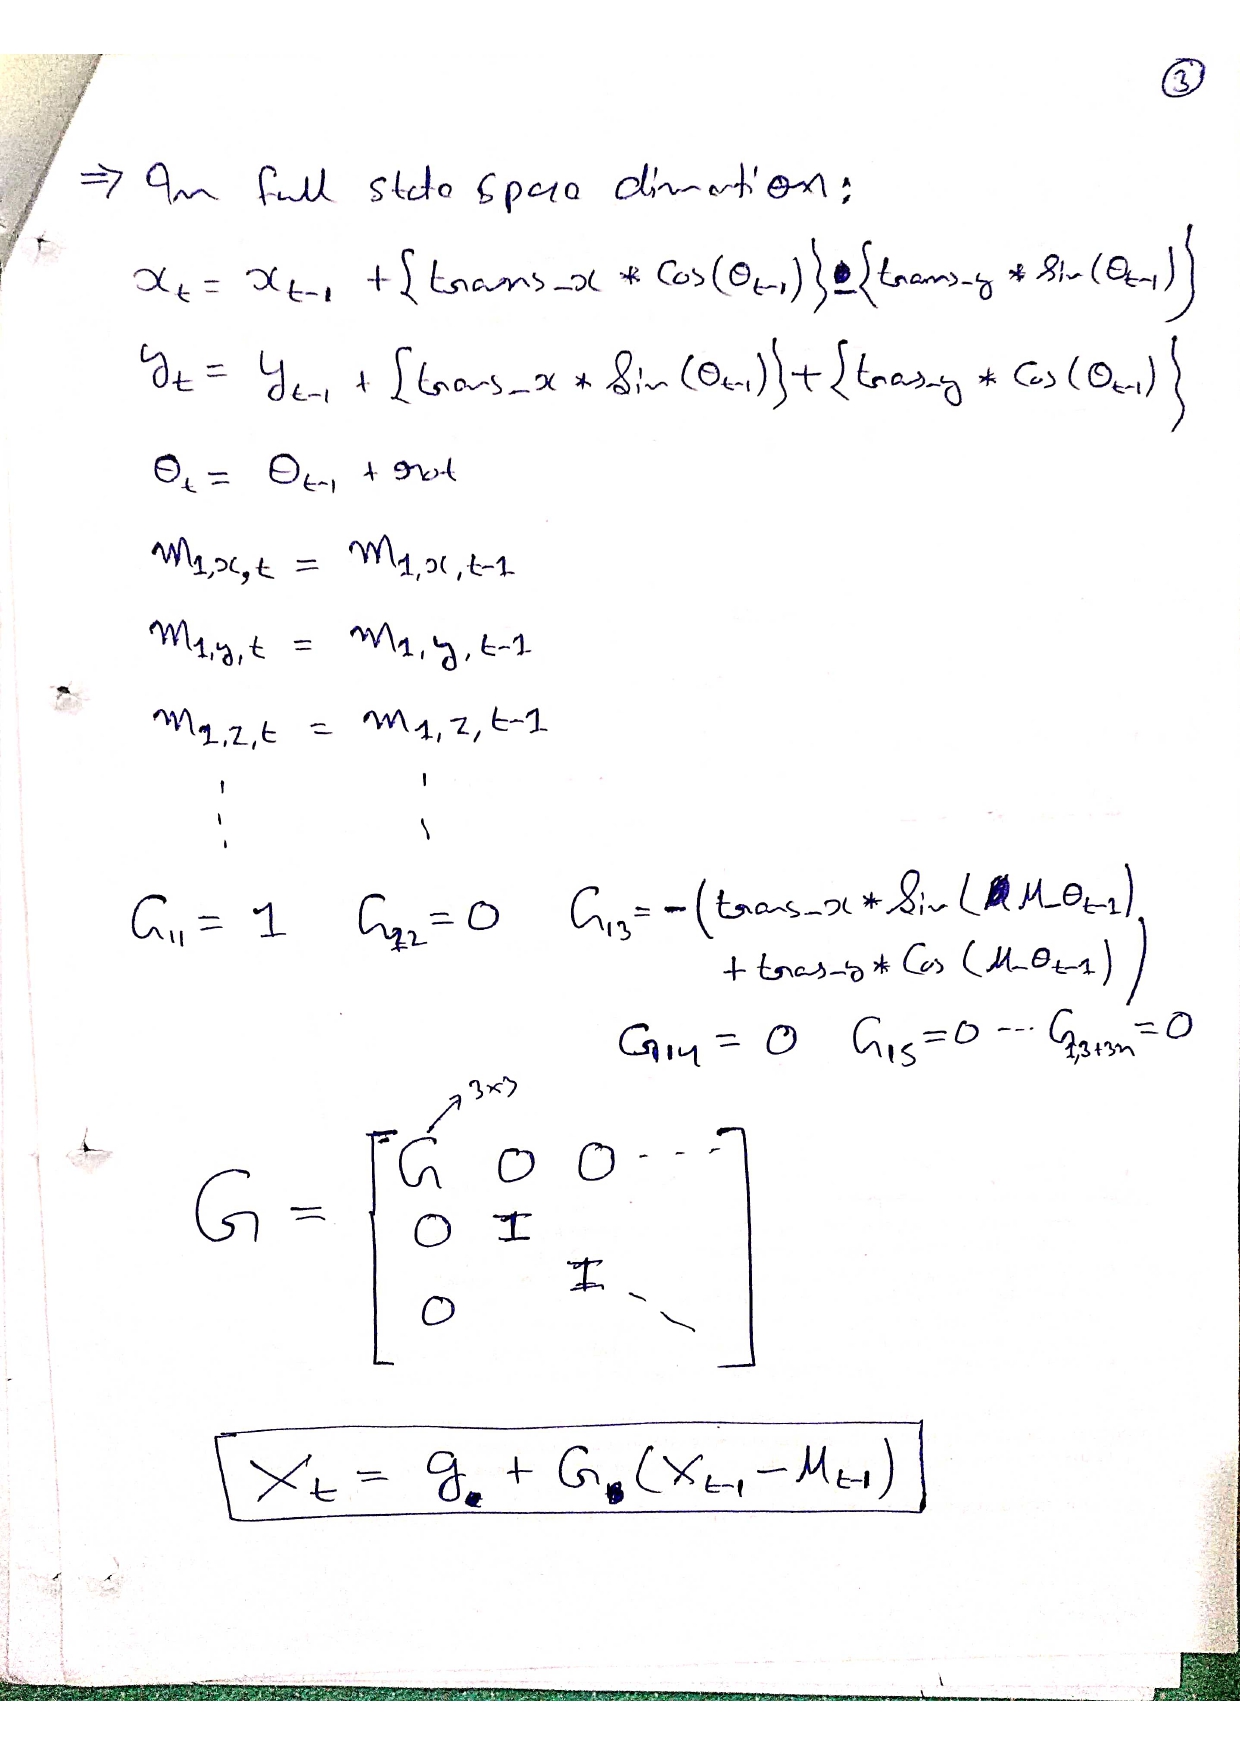 3
⇒ In full state space dimention:
x_t = x_{t-1} + {trans_x * Cos(θ_{t-1})} - {trans_y * Sin(θ_{t-1})}
y_t = y_{t-1} + {trans_x * Sin(θ_{t-1})} + {tras_y * Cos(θ_{t-1})}
θ_t = θ_{t-1} + rot
m_{1,x,t} = m_{1,x,t-1}
m_{1,y,t} = m_{1,y,t-1}
m_{1,z,t} = m_{1,z,t-1}
G_{11} = 1 G_{12} = 0 G_{13} = -(trans_x * Sin(μ_θ_{t-1})
+ tras_y * Cos(μ_θ_{t-1}))
G_{14} = 0 G_{15} = 0 --- G_{1,3+3n} = 0
3x3
G = [G 0 0 - - -
0 I
I
0 ]
X_t = g + G(X_{t-1} - μ_{t-1})